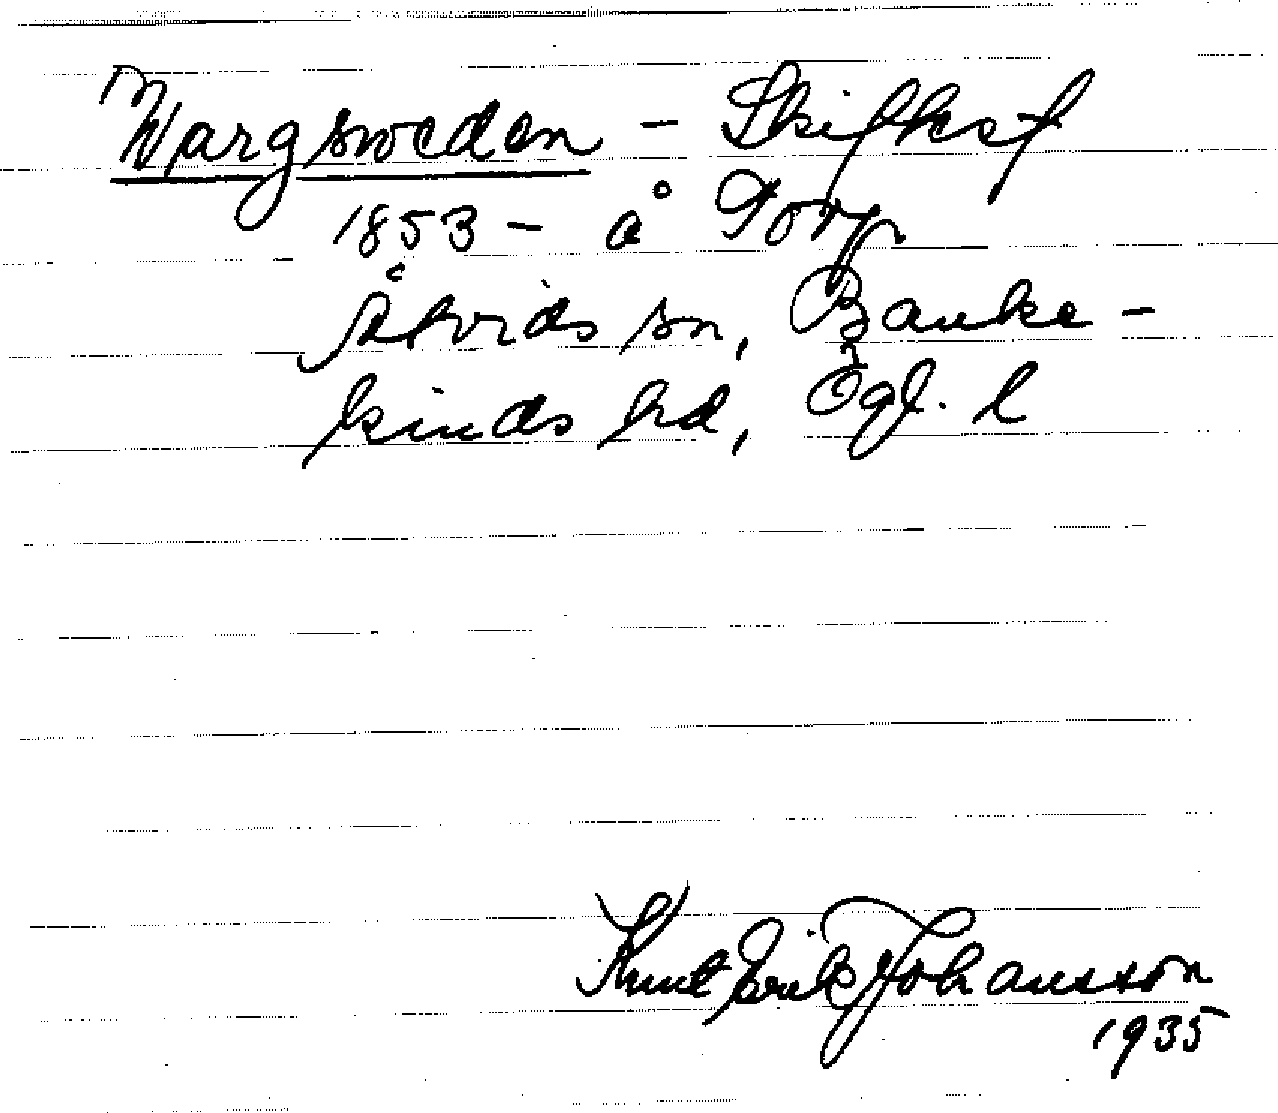 Wargsweden - Skifkst
1853 - å Torp
Åtvids sn, Banke-
kinds hd, Ögl. l
Knut Erik Johansson
1935